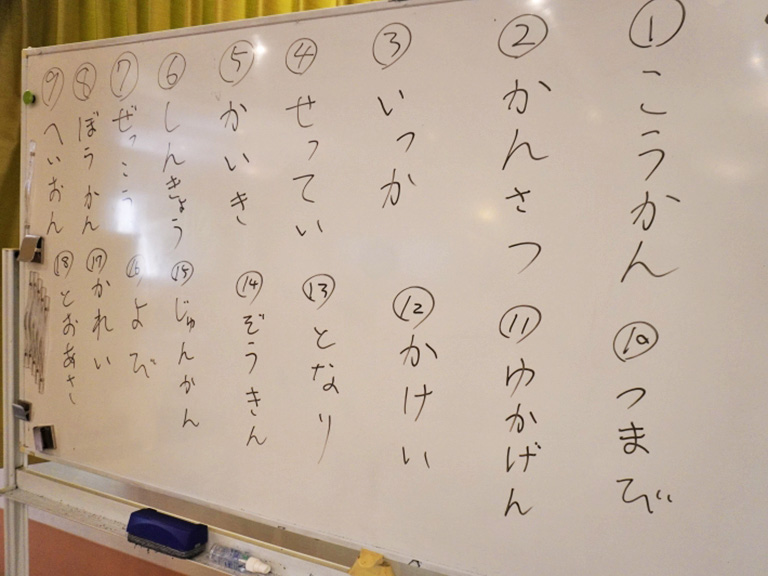 ① こうかん
② かんさつ
③ いっか
④ せってい
⑤ かいき
⑥ しんきょう
⑦ ぜっこう
⑧ ぼうかん
⑨ へいおん
⑩ つまび
⑪ ゆかげん
⑫ かけい
⑬ となり
⑭ ぞうきん
⑮ じゅんかん
⑯ よび
⑰ かれい
⑱ とおあさ